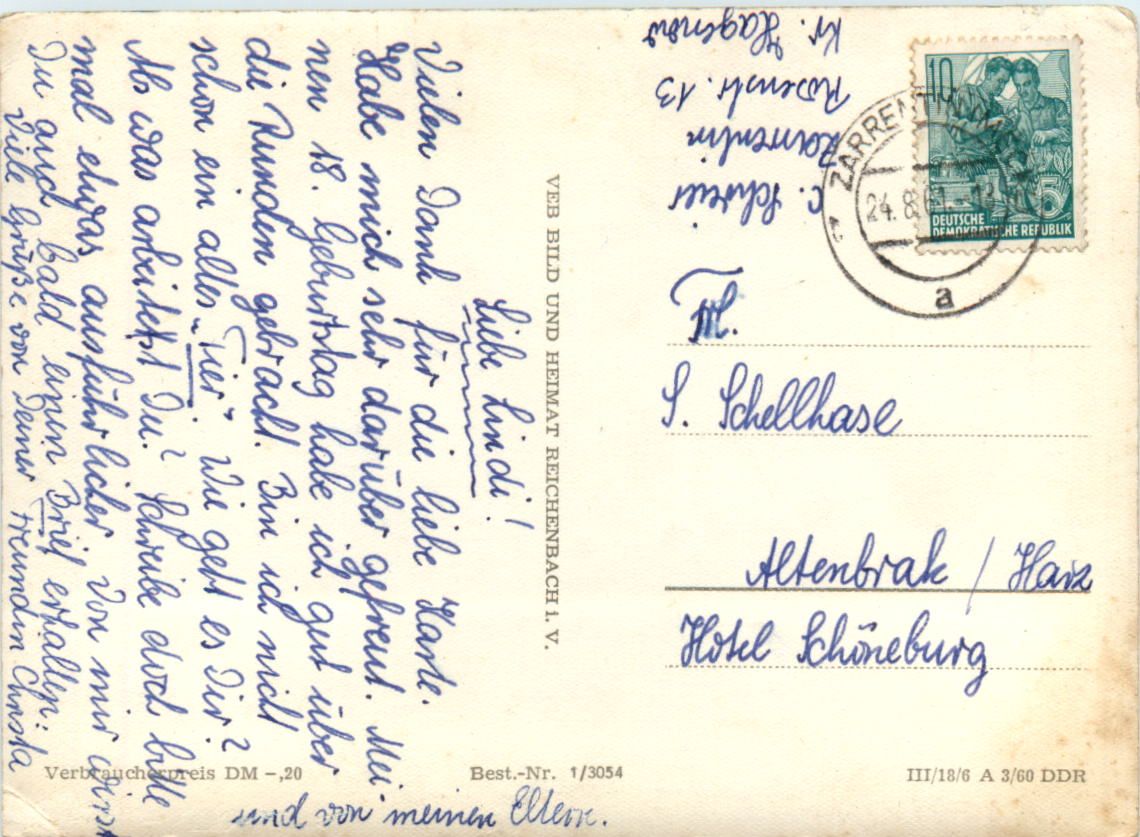 Liebe Lindi!
Vielen Dank für die liebe Karte.
Habe mich sehr darüber gefreut. Mei-
nen 18. Geburtstag habe ich gut über
die Runden gebracht. Bin ich nicht
schon ein altes „Tier". Wie geht es Dir?
Ab was arbeitest Du? Schreibe doch bitte
mal etwas ausführlicher. Von mir wirst
Du auch bald einen Brief erhalten.
Viele Grüße von Deiner Freundin Christa
und von meinen Eltern.
VEB BILD UND HEIMAT REICHENBACH i. V.
C. Schreier
Zarrentin
Rosenstr. 13
Kr. Hagenow
10
5
DEUTSCHE
DEMOKRATISCHE REPUBLIK
ZARRENTIN
24. 8. 61
a
S. Schellhase
Altenbrak / Harz
Hotel Schöneburg
Verbraucherpreis DM -,20
Best.-Nr. 1/3054
III/18/6 A 3/60 DDR